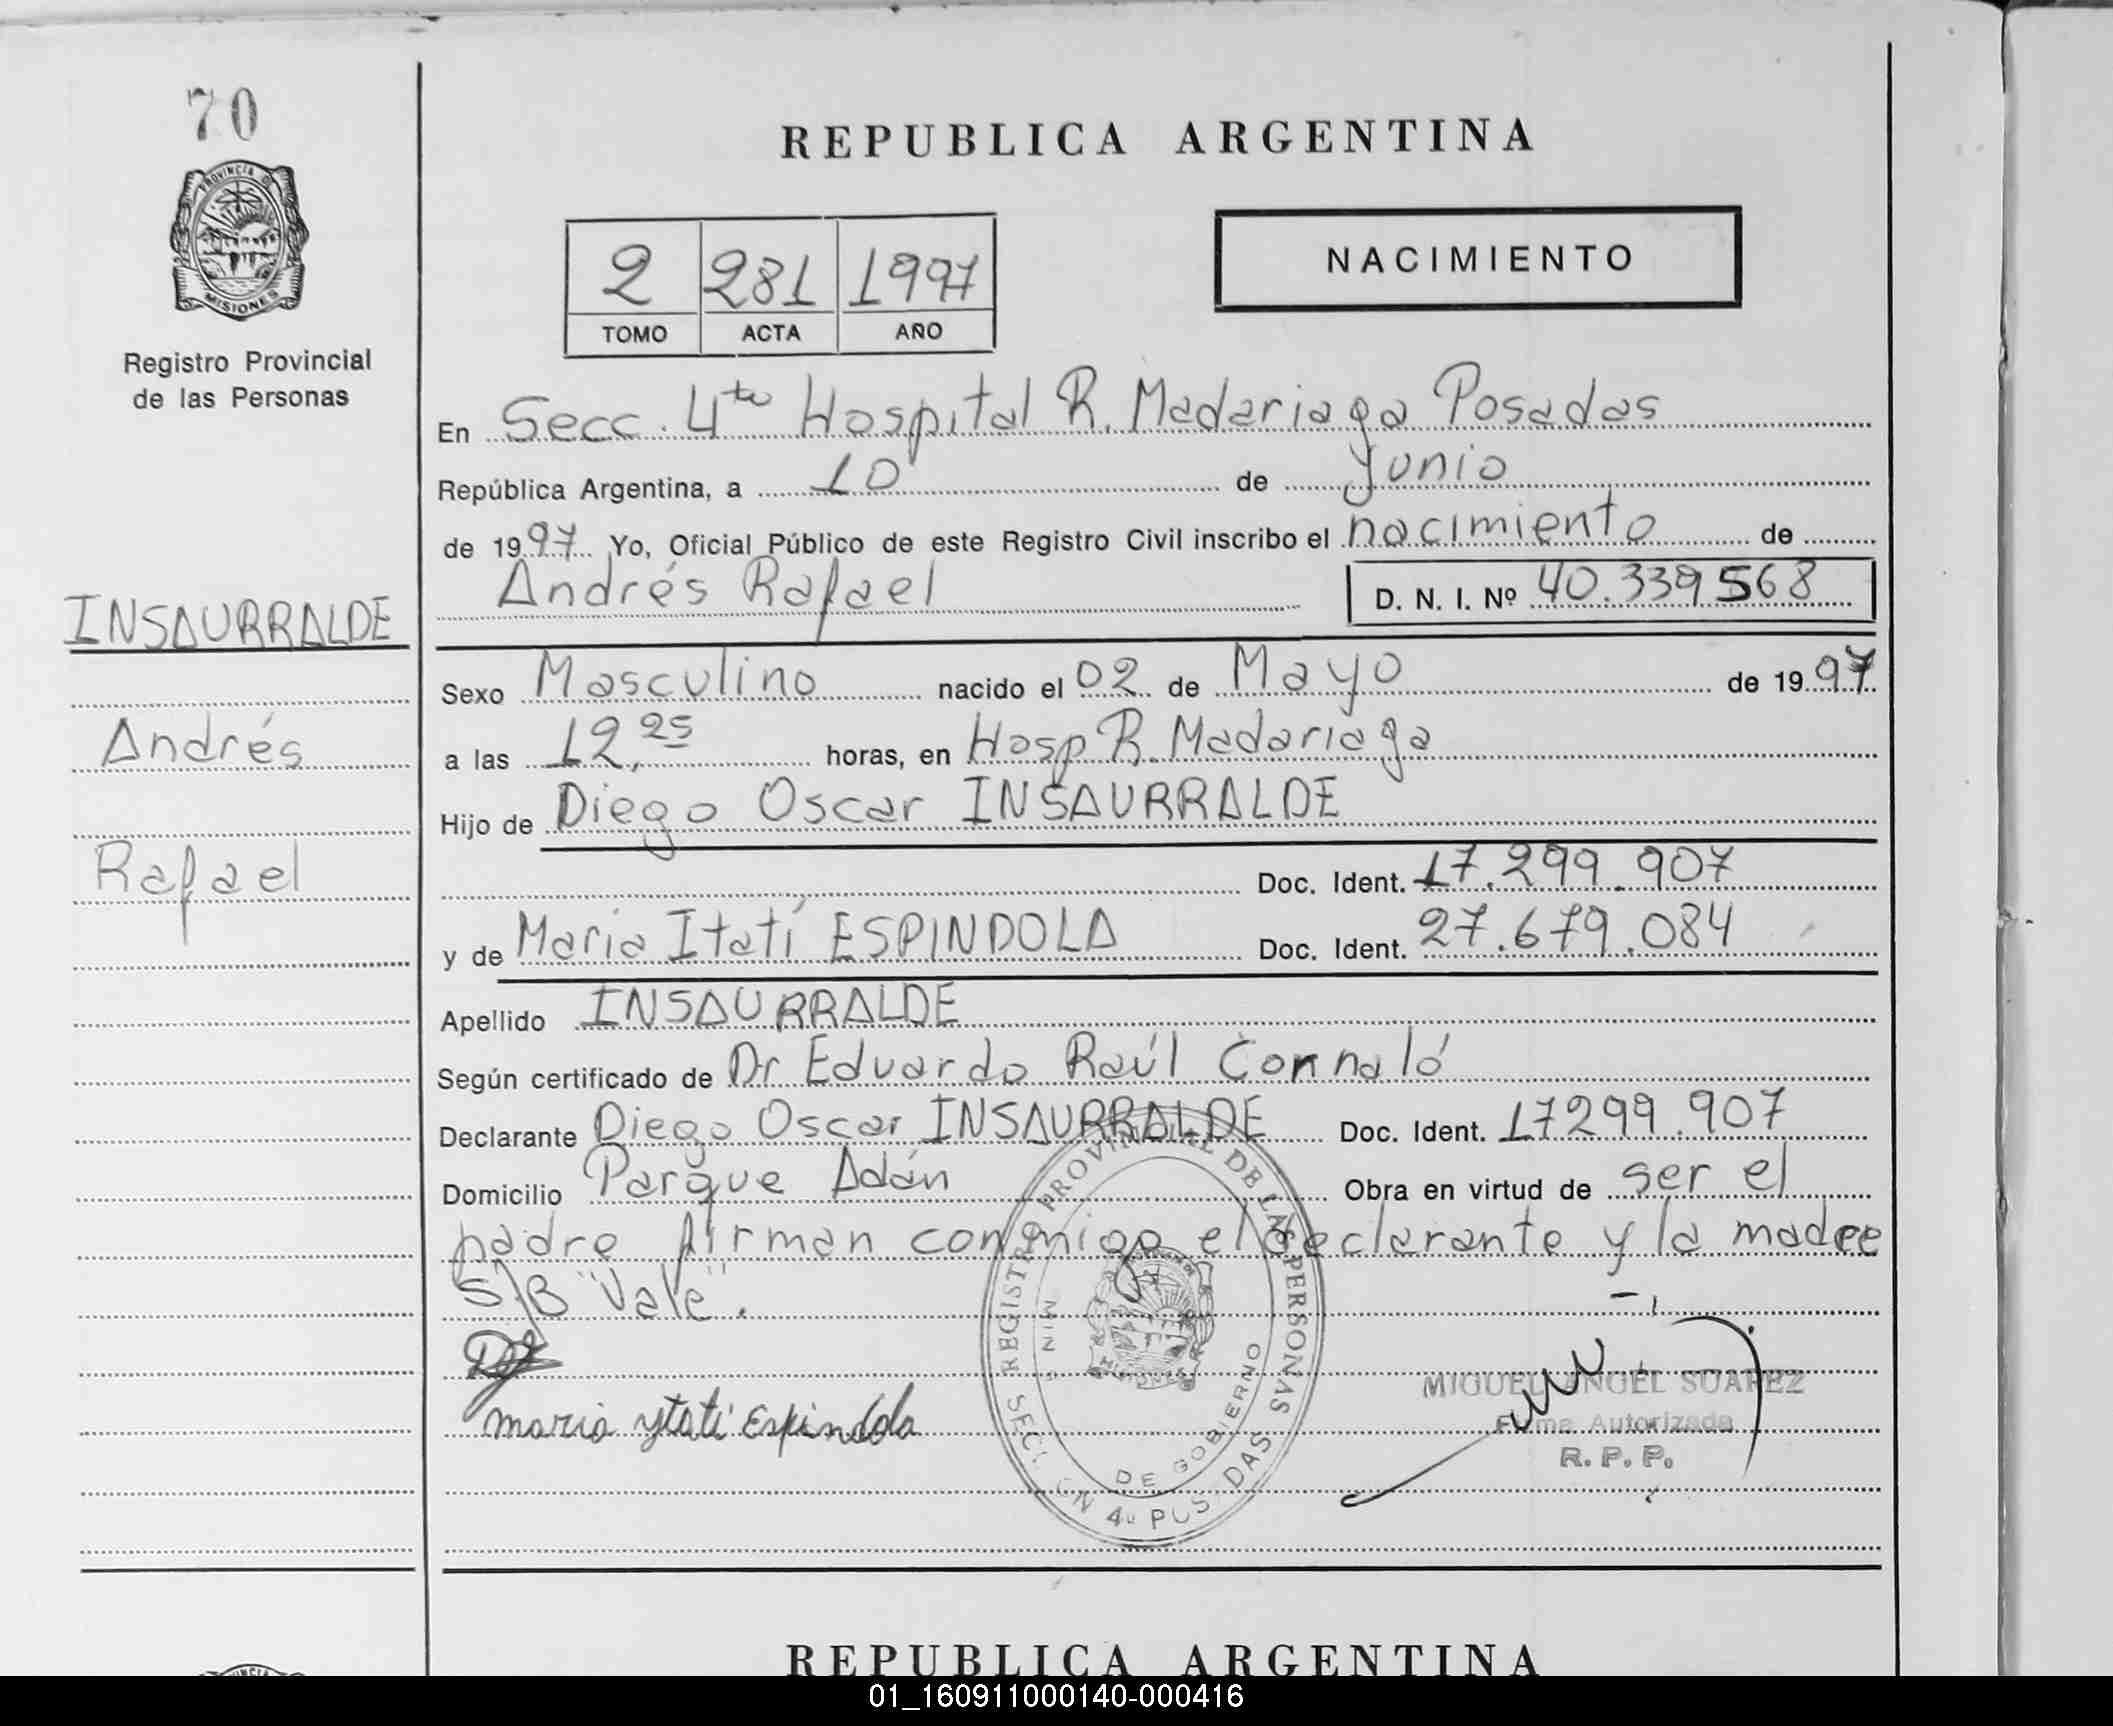 70
PROVINCIA DE
MISIONES
Registro Provincial
de las Personas
INSAURRALDE
Andrés
Rafael
REPUBLICA ARGENTINA
2 281 1997
TOMO ACTA AÑO
NACIMIENTO
En Secc. 4ta Hospital R. Madariaga Posadas
República Argentina, a 10 de Junio
de 1997 Yo, Oficial Público de este Registro Civil inscribo el nacimiento de
Andrés Rafael D. N. I. Nº 40.339568
Sexo Masculino nacido el 02 de Mayo de 1997
a las 12,25 horas, en Hosp R. Madariaga
Hijo de Diego Oscar INSAURRALDE
Doc. Ident. 17.299.907
y de Maria Itatí ESPINDOLA Doc. Ident. 27.679.084
Apellido INSAURRALDE
Según certificado de Dr Eduardo Raúl Connaló
Declarante Diego Oscar INSAURRALDE Doc. Ident. 17299.907
Domicilio Parque Adán Obra en virtud de ser el
padre firman conmigo el declarante y la madre
S/B "Vale".
maria ytatí Espindola
REGISTRO PROVINCIAL DE LAS PERSONAS
DE GOBIERNO
MIGUEL ANGEL SUAREZ
Firma Autorizada
R. P. P.
REPUBLICA ARGENTINA
01_160911000140-000416